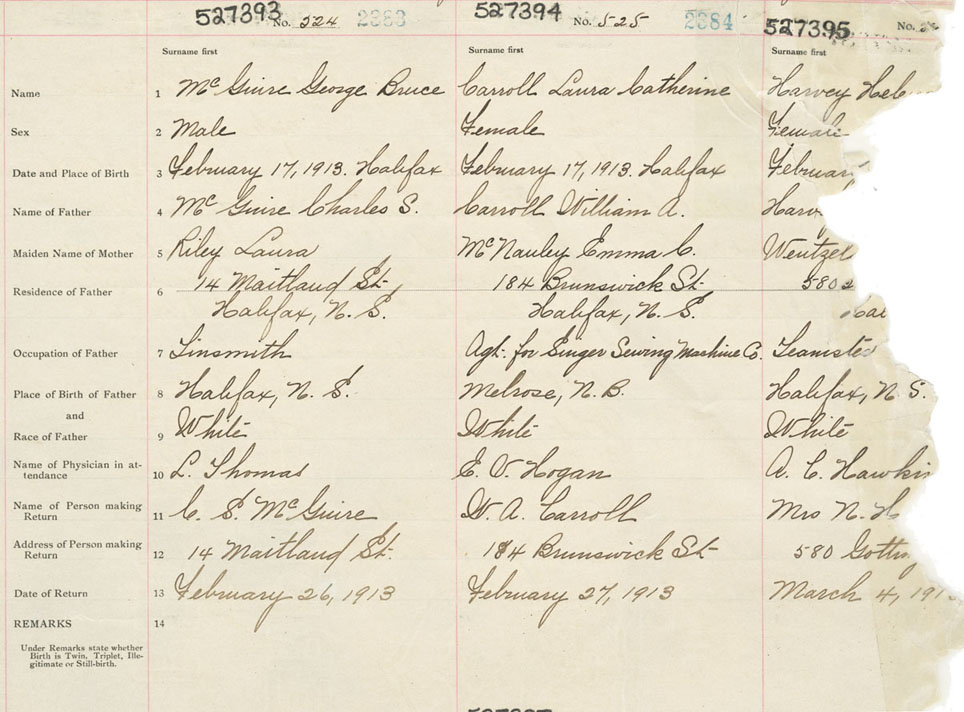 527393 No. 524 2383 527394 No. 525 2384 527395 No.
Surname first Surname first Surname first
Name 1 McGuire George Bruce Carroll Laura Catherine Harvey Hel
Sex 2 Male Female Female
Date and Place of Birth 3 February 17, 1913. Halifax February 17, 1913. Halifax Februar
Name of Father 4 McGuire Charles S. Carroll William A. Harv
Maiden Name of Mother 5 Riley Laura McNauley Emma C. Wentzel
Residence of Father 6 14 Maitland St. 184 Brunswick St. 580
Halifax, N. S. Halifax, N. S. Hal
Occupation of Father 7 Tinsmith Agt. for Singer Sewing Machine Co. Teamste
Place of Birth of Father 8 Halifax, N. S. Melrose, N. B. Halifax, N. S.
and
Race of Father 9 White White White
Name of Physician in at-
tendance 10 L. Thomas E. V. Hogan A. C. Hawki
Name of Person making
Return 11 C. S. McGuire W. A. Carroll Mrs N. H
Address of Person making
Return 12 14 Maitland St. 184 Brunswick St. 580 Gotti
Date of Return 13 February 26, 1913 February 27, 1913 March 4, 191
REMARKS 14
Under Remarks state whether
Birth is Twin, Triplet, Ille-
gitimate or Still-birth.